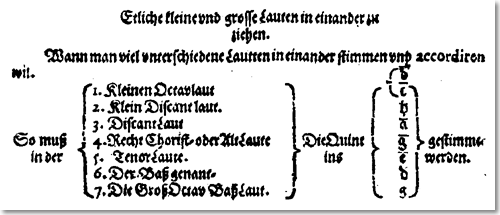 Etliche kleine vnd grosse Lauten in einander zu
ziehen.
Wann man viel vnterschiedene Lautten in einander stimmen vnd accordiren
wil.
So muß in der
1. Kleinen Octavlaut
2. Klein Discant laut.
3. Discant Laut
4. Recht Chorist- oder Alt Laute
5. Tenor Laute.
6. Der Baß genant-
7. Die Groß Octav Baß Laut.
Die Quint ins
d
c
h
a
g
e
d
g
gestimmt werden.